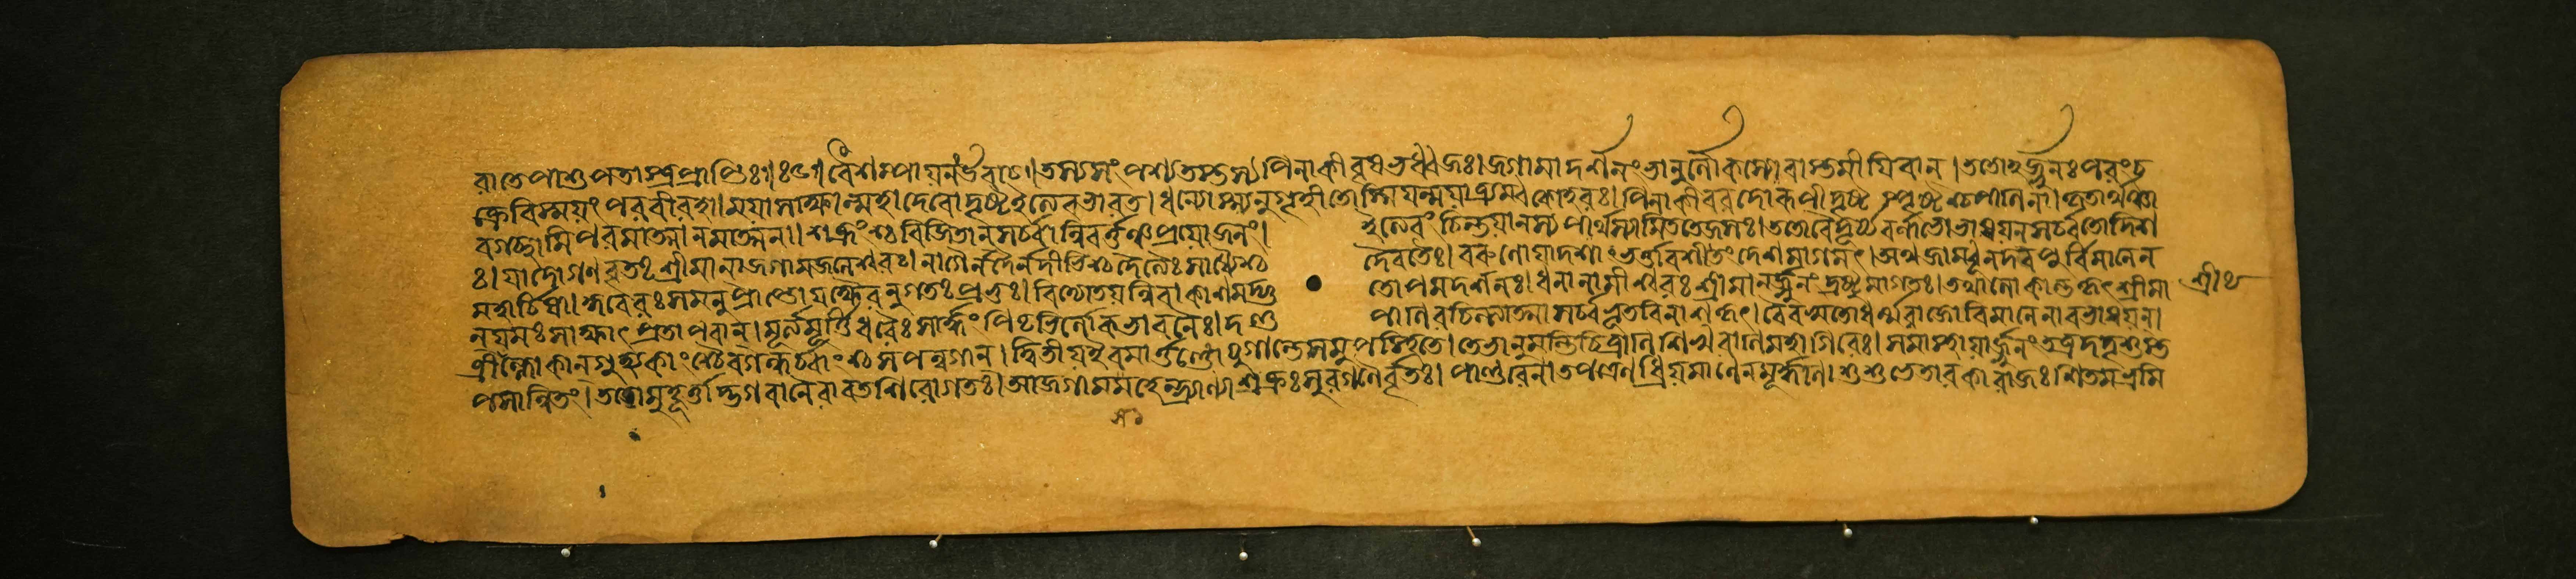 ৰাতে পাশুপতাস্ত্ৰপ্ৰাপ্তিঃ॥ঃ৫॥ বৈশম্পায়ন উৰাচ॥ তস্য সংপশ্যতস্তস্য পিনাকী বৃষভধ্বজঃ। জগামাদৰ্শনং ভানুৰ্লোকস্যেবাস্তমীয়িবান্। ততোহৰ্জ্জুনঃ পৰং চ
ক্ৰে বিস্ময়ং পৰবীৰহা। ময়া সাক্ষান্মহাদেবো দৃষ্ট ইত্যেব ভাৰত। ধন্যোস্ম্যনুগৃহীতোস্মি যন্ময়া ত্ৰ্যম্বকো হৰঃ। পিনাকী বৰদো ৰূপী দৃষ্টঃ স্পৃষ্টশ্চ পাণিনা। কৃতাৰ্থঞ্চা
বগচ্ছামি পৰমাত্মানমাত্মনা। শত্ৰূংশ্চ বিজিতান্ সৰ্ব্বান্নিবৰ্ত্তঞ্চ প্ৰয়োজনং। ইত্যেবং চিন্তয়ানস্য পাৰ্থস্যামিততেজসঃ। ততো বৈদূৰ্য্যবৰ্ণাভো ভাসয়ন্ সৰ্ব্বতো দিশ
ঃ। যাদোগণবৃতঃ শ্ৰীমানাজগাম জলেশ্বৰঃ। নাগৈৰ্নদৈৰ্নদীভিশ্চ দৈত্যৈঃ সাধ্যৈশ্চ দৈবতৈঃ। বৰুণো যাদসাং ভৰ্ত্তা বশী তং দেশমাগমৎ। অথ জাম্বূনদবপুৰ্বিমানেন
মহাৰ্চিষা। কুবেৰঃ সমনুপ্ৰাপ্তো যক্ষৈৰনুগতঃ প্ৰভুঃ। বিদ্যোতয়ন্নিবাকাশমদ্ভু তোপমদৰ্শনঃ। ধনানামীশ্বৰঃ শ্ৰীমানৰ্জ্জুনং দ্ৰষ্টুমাগতঃ। তথা লোকান্তকৃৎ শ্ৰীমা শ্ৰীঃ
ন্ যমঃ সাক্ষাৎ প্ৰতাপবান্। মূৰ্ত্ত্যমূৰ্ত্তিধৰৈঃ সাৰ্দ্ধং পিতৃভিৰ্লোকভাবনৈঃ। দণ্ড পাণিৰচিন্ত্যাত্মা সৰ্ব্বভূতবিনাশকৃৎ। বৈবস্বতো ধৰ্ম্মৰাজো বিমানেনাবভাসয়ন্।
ত্ৰীঁল্লোকান্ গুহ্যকাংশ্চৈব গন্ধৰ্ব্বাংশ্চ সপন্নগান্। দ্বিতীয় ইব মাৰ্ত্তণ্ডো যুগান্তে সমুপস্থিতে। তে ভানুমন্তি চিত্ৰাণি শিখৰাণি মহাগিৰেঃ। সমাস্থায়াৰ্জ্জুনং তত্ৰ দদৃশুস্ত
পসান্বিতং। ততো মুহূৰ্ত্তাদ্ভগবানৈৰাবতশিৰোগতঃ। আজগাম মহেন্দ্ৰাণ্যা শক্ৰঃ সুৰগণৈৰ্বৃতঃ। পাণ্ডুৰেনাতপত্ৰেণ ধ্ৰিয়মাণেন মূৰ্দ্ধনি। শুশুভে তাৰকাৰাজঃ শিতমভ্ৰমি